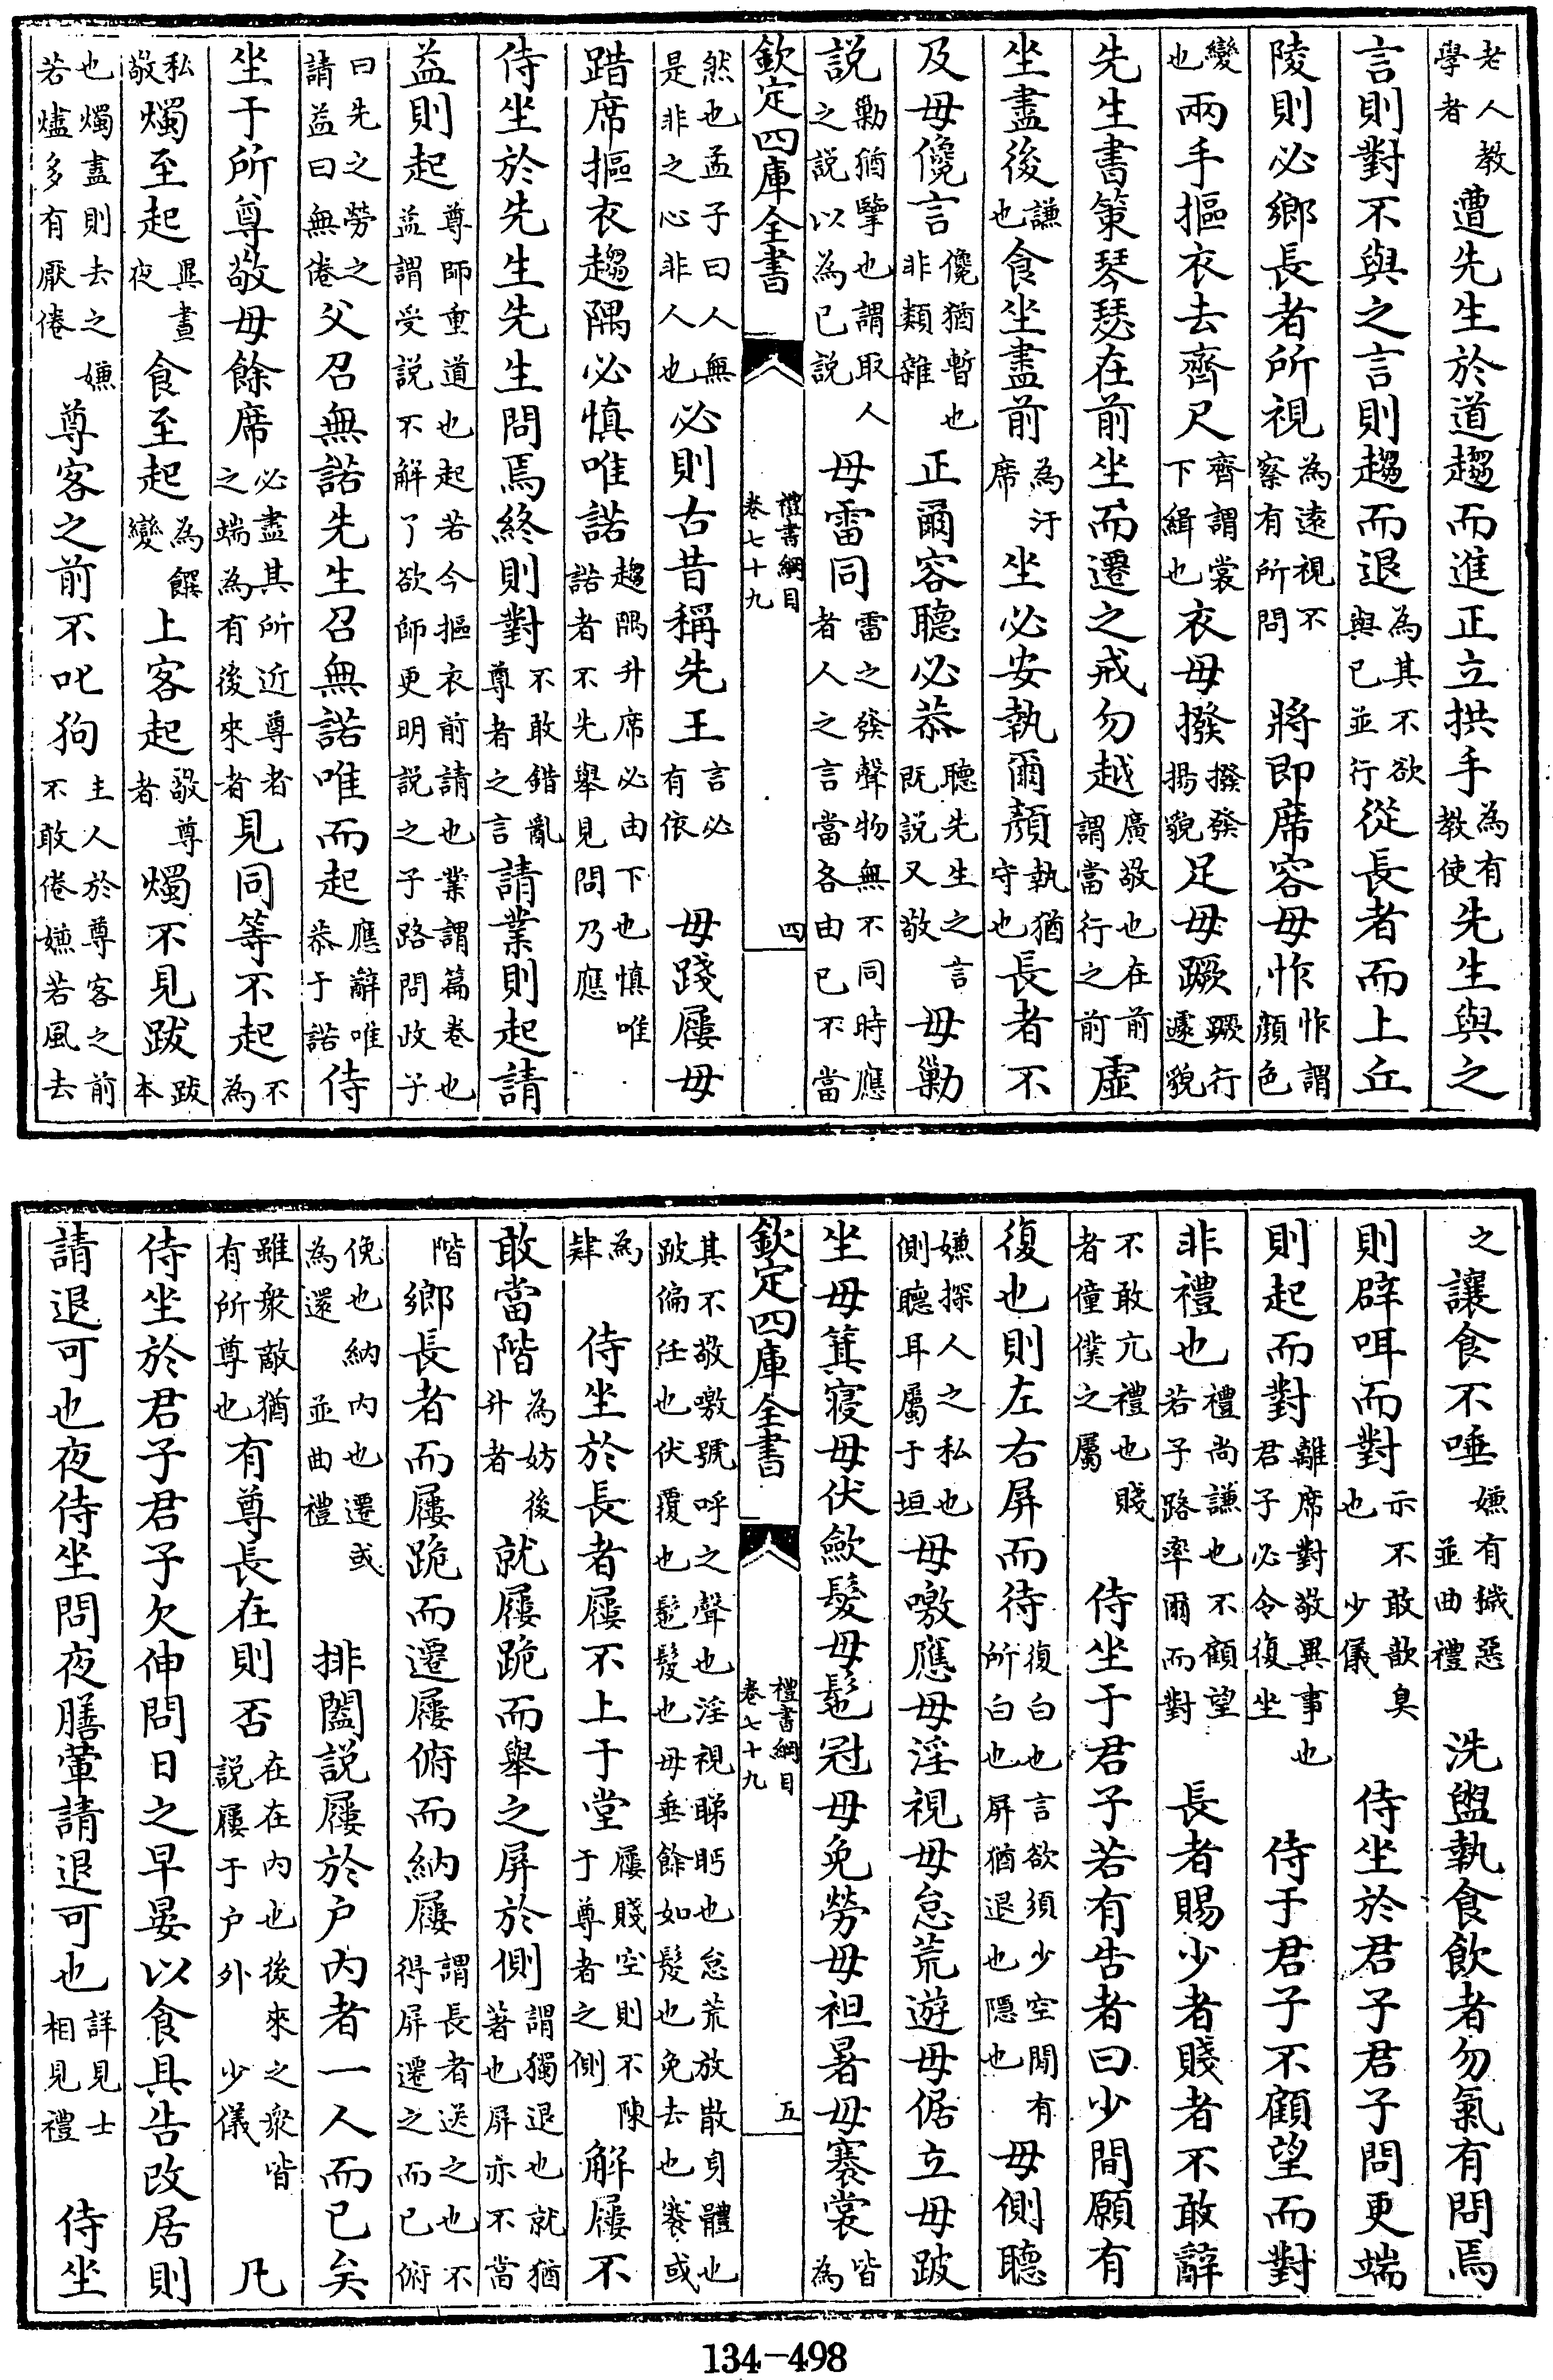 老人教學者遭先生於道趨而進正立拱手為有教使先生與之
言則對不與之言則趨而退為其不欲與已並行從長者而上丘
陵則必鄉長者所視為遠視不察有所問將即席容毋怍怍謂顔色
變也兩手摳衣去齊尺齊謂裳下緝也衣毋撥撥發揚貌足毋蹶蹶行遽貌
先生書策琴瑟在前坐而遷之戒勿越廣敬也在前謂當行之前虛
坐盡後謙也食坐盡前為汙席坐必安執爾顔執猶守也長者不
及毋儳言儳猶暫也非類雜正爾容聽必恭聽先生之言既説又敬毋勦
説勦猶擥也謂取人之説以為已説毋雷同雷之發聲物無不同時應者人之言當各由已不當
欽定四庫全書
禮書綱目
卷七十九
四
然也孟子曰人無是非之心非人也必則古昔稱先王言必有依毋踐屨毋
踖席摳衣趨隅必慎唯諾趨隅升席必由下也慎唯諾者不先舉見問乃應
侍坐於先生先生問焉終則對不敢錯亂尊者之言請業則起請
益則起尊師重道也起若今摳衣前請也業謂篇卷也益謂受説不解了欲師更明説之子路問政子
曰先之勞之請益曰無倦父召無諾先生召無諾唯而起應辭唯恭于諾侍
坐于所尊敬毋餘席必盡其所近尊者之端為有後來者見同等不起不為
私敬燭至起異晝夜食至起為饌變上客起敬尊者燭不見跋跋本
也燭盡則去之嫌若燼多有厭倦尊客之前不叱狗主人於尊客之前不敢倦嫌若風去
之讓食不唾嫌有穢惡並曲禮洗盥執食飲者勿氣有問焉
則辟咡而對示不敢歆臭也少儀侍坐於君子君子問更端
則起而對離席對敬異事也君子必令復坐侍于君子不顧望而對
非禮也禮尚謙也不顧望若子路率爾而對長者賜少者賤者不敢辭
不敢亢禮也賤者僮僕之屬侍坐于君子若有告者曰少間願有
復也則左右屏而待復白也言欲須少空閒有所白也屏猶退也隱也毋側聽
嫌探人之私也側聽耳屬于垣毋噭應毋淫視毋怠荒遊毋倨立毋跛
坐毋箕寢毋伏歛髮毋髢冠毋免勞毋袒暑毋褰裳皆為
欽定四庫全書
禮書綱目
卷七十九
五
其不敬噭號呼之聲也淫視睇眄也怠荒放散身體也跛偏任也伏覆也髢髲也毋垂餘如髲也免去也褰或
為肆侍坐於長者屨不上于堂屨賤空則不陳于尊者之側解屨不
敢當階為妨後升者就屨跪而舉之屏於側謂獨退也就猶著也屏亦不當
階鄉長者而屨跪而遷屨俯而納屨謂長者送之也不得屏遷之而已俯
俛也納内也遷或為還並曲禮排闔説屨於户内者一人而已矣
雖衆敵猶有所尊也有尊長在則否在在内也後來之衆皆説屨于户外少儀凡
侍坐於君子君子欠伸問日之早晏以食具告改居則
請退可也夜侍坐問夜膳葷請退可也詳見士相見禮侍坐
134-498